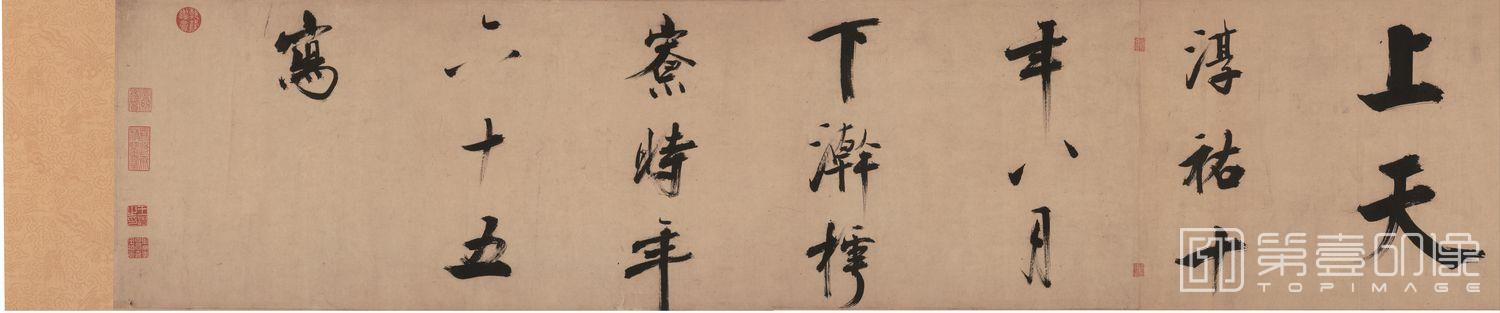 上天
淳祐十
年八月
下澣樗
寮時年
六十五
寫
第壹印像
TOPIMAGE